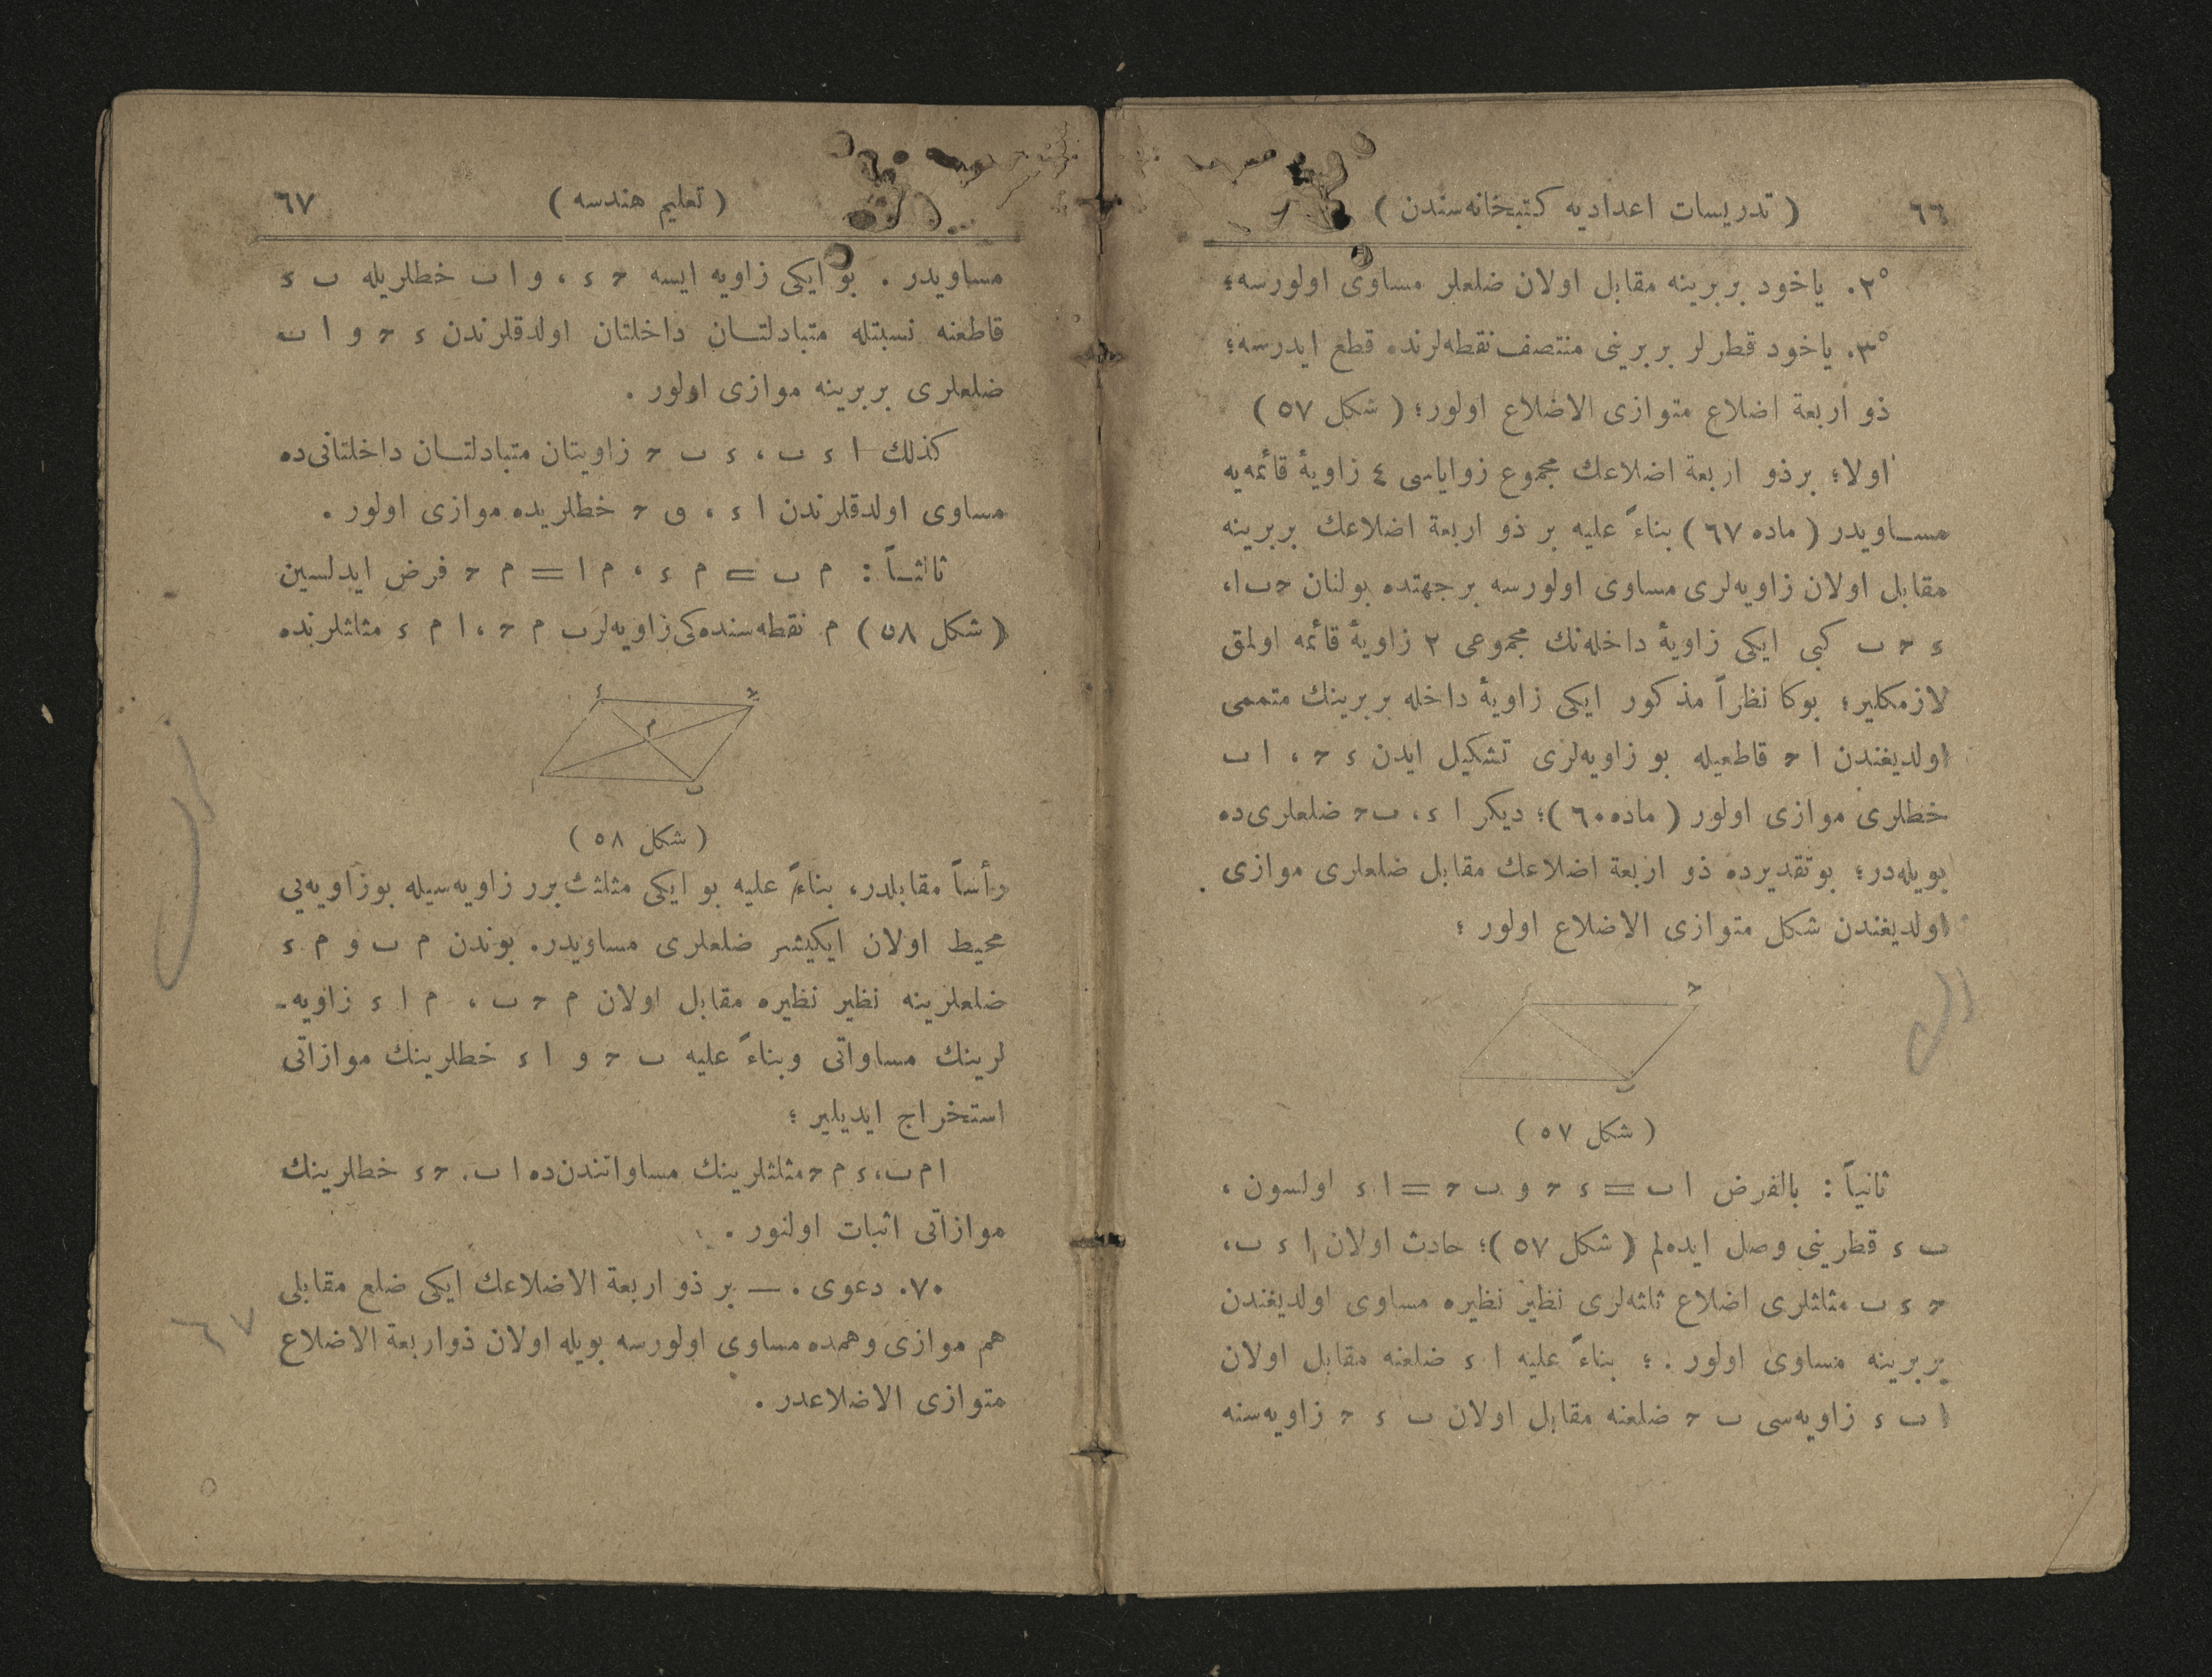 ٦٦ ( تدریسات اعدادیه کتبخانه‌سندن )
۲°. یاخود بربرینه مقابل اولان ضلعلر مساوی اولورسه؛
۳°. یاخود قطرلر بربرینی منتصف نقطه‌لرنده قطع ایدرسه؛
ذو اربعة اضلاع متوازی الاضلاع اولور؛ ( شکل ٥٧ )
اولا؛ بر ذو اربعة اضلاعك مجموع زوایاسی ٤ زاویهٔ قائمه‌یه
مساویدر ( ماده ٦٧ ) بناءً علیه بر ذو اربعة اضلاعك بربرینه
مقابل اولان زاویه‌لری مساوی اولورسه برجهتده بولنان حـ ب ا،
ء حـ ب کبی ایکی زاویهٔ داخله‌نك مجموعی ۲ زاویهٔ قائمه اولمق
لازمکلیر؛ بوکا نظراً مذکور ایکی زاویهٔ داخله بربرینك متممی
اولدیغندن ا حـ قاطعیله بو زاویه‌لری تشکیل ایدن ء حـ ، ا ب
خطلری موازی اولور ( ماده ٦٠ )؛ دیکر ا ء ، ب حـ ضلعلری‌ده
بویله‌در؛ بوتقدیرده ذو اربعة اضلاعك مقابل ضلعلری موازی
اولدیغندن شکل متوازی الاضلاع اولور ؛
حـ
ب
( شکل ٥٧ )
ثانیاً : بالفرض ا ب = ء حـ و ب حـ = ا ء اولسون ،
ب ء قطرینی وصل ایده‌لم ( شکل ٥٧ )؛ حادث اولان ا ء ب،
حـ ء ب مثلثلری اضلاع ثلثه‌لری نظیر نظیره مساوی اولدیغندن
بربرینه مساوی اولور . ؛ بناءً علیه ا ء ضلعنه مقابل اولان
ا ب ء زاویه‌سی ب حـ ضلعنه مقابل اولان ب ء حـ زاویه‌سنه
( تعلیم هندسه ) ٦٧
مساویدر . بو ایکی زاویه ایسه حـ ء ، و ا ب خطلریله ب ء
قاطعنه نسبتله متبادلتان داخلتان اولدقلرندن ء حـ و ا ب
ضلعلری بربرینه موازی اولور .
کذلك ا ء ب ، ء ب حـ زاویتان متبادلتان داخلتانی‌ده
مساوی اولدقلرندن ا ء ، و حـ خطلریده موازی اولور .
ثالثاً : م ب = م ء ، م ا = م حـ فرض ایدلسین
( شکل ٥٨ ) م نقطه‌سنده‌کی زاویه‌لر ب م حـ ، ا م ء مثلثلرنده
ء حـ
م
ا ب
( شکل ٥٨ )
رأساً مقابلدر، بناءً علیه بو ایکی مثلثك برر زاویه‌سیله بوزاویه‌یی
محیط اولان ایکیشر ضلعلری مساویدر. بوندن م ب و م ء
ضلعلرینه نظیر نظیره مقابل اولان م حـ ب ، م ا ء زاویه‌ـ
لرینك مساواتی وبناءً علیه ب حـ و ا ء خطلرینك موازاتی
استخراج ایدیلیر ؛
ا م ب، ء م حـ مثلثلرینك مساواتندن‌ده ا ب. حـ ء خطلرینك
موازاتی اثبات اولنور .
۷۰. دعوی . — بر ذو اربعة الاضلاعك ایکی ضلع مقابلی
هم موازی وهمده مساوی اولورسه بویله اولان ذواربعة الاضلاع
متوازی الاضلاعدر .